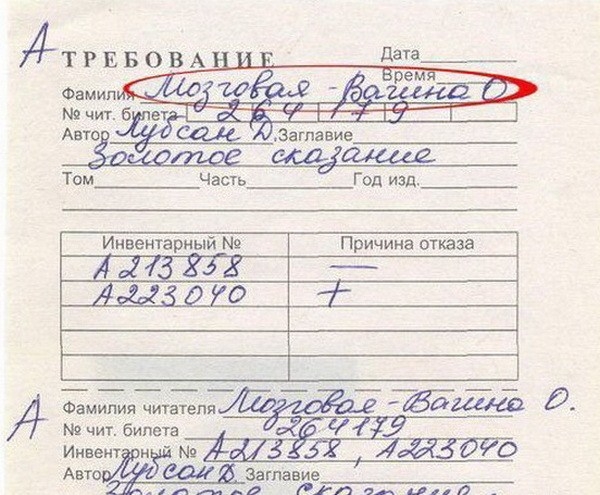 А ТРЕБОВАНИЕ Дата
Время
Фамилия Мозговая - Вагина О
№ чит. билета 264 179
Автор Лубсан Д. Заглавие
Золотое сказание
Том Часть Год изд.
Инвентарный № Причина отказа
А 213858 —
А 223040 +
А Фамилия читателя Мозговая - Вагина О.
№ чит. билета 264179
Инвентарный № А 213858, А 223040
Автор Лубсан Д Заглавие
Золотое сказание